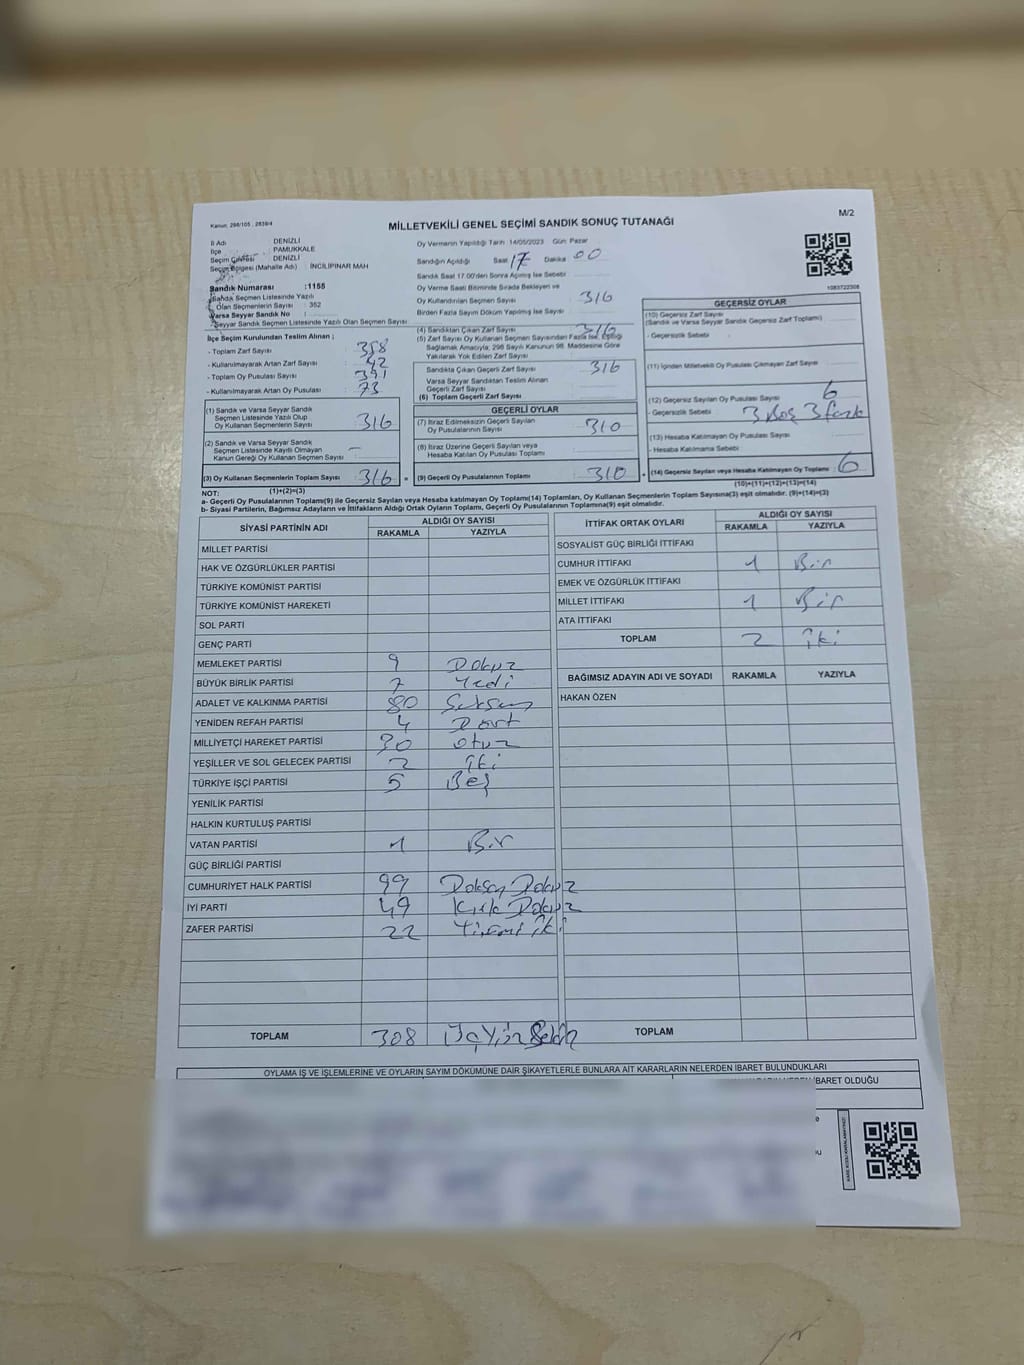 Kanun: 298/105 , 2839/4
M/2
MİLLETVEKİLİ GENEL SEÇİMİ SANDIK SONUÇ TUTANAĞI
İl Adı DENİZLİ
İlçe PAMUKKALE
Seçim Çevresi DENİZLİ
Seçim Bölgesi (Mahalle Adı) : İNCİLİPINAR MAH
Sandık Numarası :1155
Sandık Seçmen Listesinde Yazılı
Olan Seçmenlerin Sayısı : 352
Varsa Seyyar Sandık No :
Seyyar Sandık Seçmen Listesinde Yazılı Olan Seçmen Sayısı
İlçe Seçim Kurulundan Teslim Alınan ;
- Toplam Zarf Sayısı 358
- Kullanılmayarak Artan Zarf Sayısı 42
- Toplam Oy Pusulası Sayısı
- Kullanılmayarak Artan Oy Pusulası 73
(1) Sandık ve Varsa Seyyar Sandık
Seçmen Listesinde Yazılı Olup
Oy Kullanan Seçmenlerin Sayısı 316
(2) Sandık ve Varsa Seyyar Sandık
Seçmen Listesinde Kayıtlı Olmayan
Kanun Gereği Oy Kullanan Seçmen Sayısı —
(3) Oy Kullanan Seçmenlerin Toplam Sayısı 316 =
(1)+(2)=(3)
Oy Vermenin Yapıldığı Tarih 14/05/2023 Gün Pazar
Sandığın Açıldığı Saat 17 Dakika 00
Sandık Saat 17.00'den Sonra Açılmış İse Sebebi
Oy Verme Saati Bitiminde Sırada Bekleyen ve
Oy Kullandırılan Seçmen Sayısı 316
Birden Fazla Sayım Döküm Yapılmış İse Sayısı
(4) Sandıktan Çıkan Zarf Sayısı 316
(5) Zarf Sayısı Oy Kullanan Seçmen Sayısından Fazla İse, Eşitliği
Sağlamak Amacıyla; 298 Sayılı Kanunun 98. Maddesine Göre
Yakılarak Yok Edilen Zarf Sayısı
Sandıkta Çıkan Geçerli Zarf Sayısı 316
Varsa Seyyar Sandıktan Teslim Alınan
Geçerli Zarf Sayısı
(6) Toplam Geçerli Zarf Sayısı
GEÇERLİ OYLAR
(7) İtiraz Edilmeksizin Geçerli Sayılan
Oy Pusulalarının Sayısı 310
(8) İtiraz Üzerine Geçerli Sayılan veya
Hesaba Katılan Oy Pusulası Toplamı
(9) Geçerli Oy Pusulalarının Toplamı 310 +
1083722308
GEÇERSİZ OYLAR
(10) Geçersiz Zarf Sayısı
(Sandık ve Varsa Seyyar Sandık Geçersiz Zarf Toplamı)
- Geçersizlik Sebebi
(11) İçinden Milletvekili Oy Pusulası Çıkmayan Zarf Sayısı
(12) Geçersiz Sayılan Oy Pusulası Sayısı 6
- Geçersizlik Sebebi 3 Boş 3 fazla
(13) Hesaba Katılmayan Oy Pusulası Sayısı
- Hesaba Katılmama Sebebi
(14) Geçersiz Sayılan veya Hesaba Katılmayan Oy Toplamı 6
(10)+(11)+(12)+(13)=(14)
NOT:
a- Geçerli Oy Pusulalarının Toplamı(9) ile Geçersiz Sayılan veya Hesaba katılmayan Oy Toplamı(14) Toplamları, Oy Kullanan Seçmenlerin Toplam Sayısına(3) eşit olmalıdır. (9)+(14)=(3)
b- Siyasi Partilerin, Bağımsız Adayların ve İttifakların Aldığı Ortak Oyların Toplamı, Geçerli Oy Pusulalarının Toplamına(9) eşit olmalıdır.
SİYASİ PARTİNİN ADI ALDIĞI OY SAYISI
RAKAMLA YAZIYLA
MİLLET PARTİSİ
HAK VE ÖZGÜRLÜKLER PARTİSİ
TÜRKİYE KOMÜNİST PARTİSİ
TÜRKİYE KOMÜNİST HAREKETİ
SOL PARTİ
GENÇ PARTİ
MEMLEKET PARTİSİ 9 Dokuz
BÜYÜK BİRLİK PARTİSİ 7 Yedi
ADALET VE KALKINMA PARTİSİ 80 Seksen
YENİDEN REFAH PARTİSİ 4 Dört
MİLLİYETÇİ HAREKET PARTİSİ 30 otuz
YEŞİLLER VE SOL GELECEK PARTİSİ 2 iki
TÜRKİYE İŞÇİ PARTİSİ 5 Beş
YENİLİK PARTİSİ
HALKIN KURTULUŞ PARTİSİ
VATAN PARTİSİ 1 Bir
GÜÇ BİRLİĞİ PARTİSİ
CUMHURİYET HALK PARTİSİ 99 Doksan Dokuz
İYİ PARTİ 49 Kırk Dokuz
ZAFER PARTİSİ 22 Yirmi iki
TOPLAM 308 Üçyüz Sekiz
İTTİFAK ORTAK OYLARI ALDIĞI OY SAYISI
RAKAMLA YAZIYLA
SOSYALİST GÜÇ BİRLİĞİ İTTİFAKI
CUMHUR İTTİFAKI 1 Bir
EMEK VE ÖZGÜRLÜK İTTİFAKI
MİLLET İTTİFAKI 1 Bir
ATA İTTİFAKI
TOPLAM 2 iki
BAĞIMSIZ ADAYIN ADI VE SOYADI RAKAMLA YAZIYLA
HAKAN ÖZEN
TOPLAM
OYLAMA İŞ VE İŞLEMLERİNE VE OYLARIN SAYIM DÖKÜMÜNE DAİR ŞİKAYETLERLE BUNLARA AİT KARARLARIN NELERDEN İBARET BULUNDUKLARI
İBARET OLDUĞU